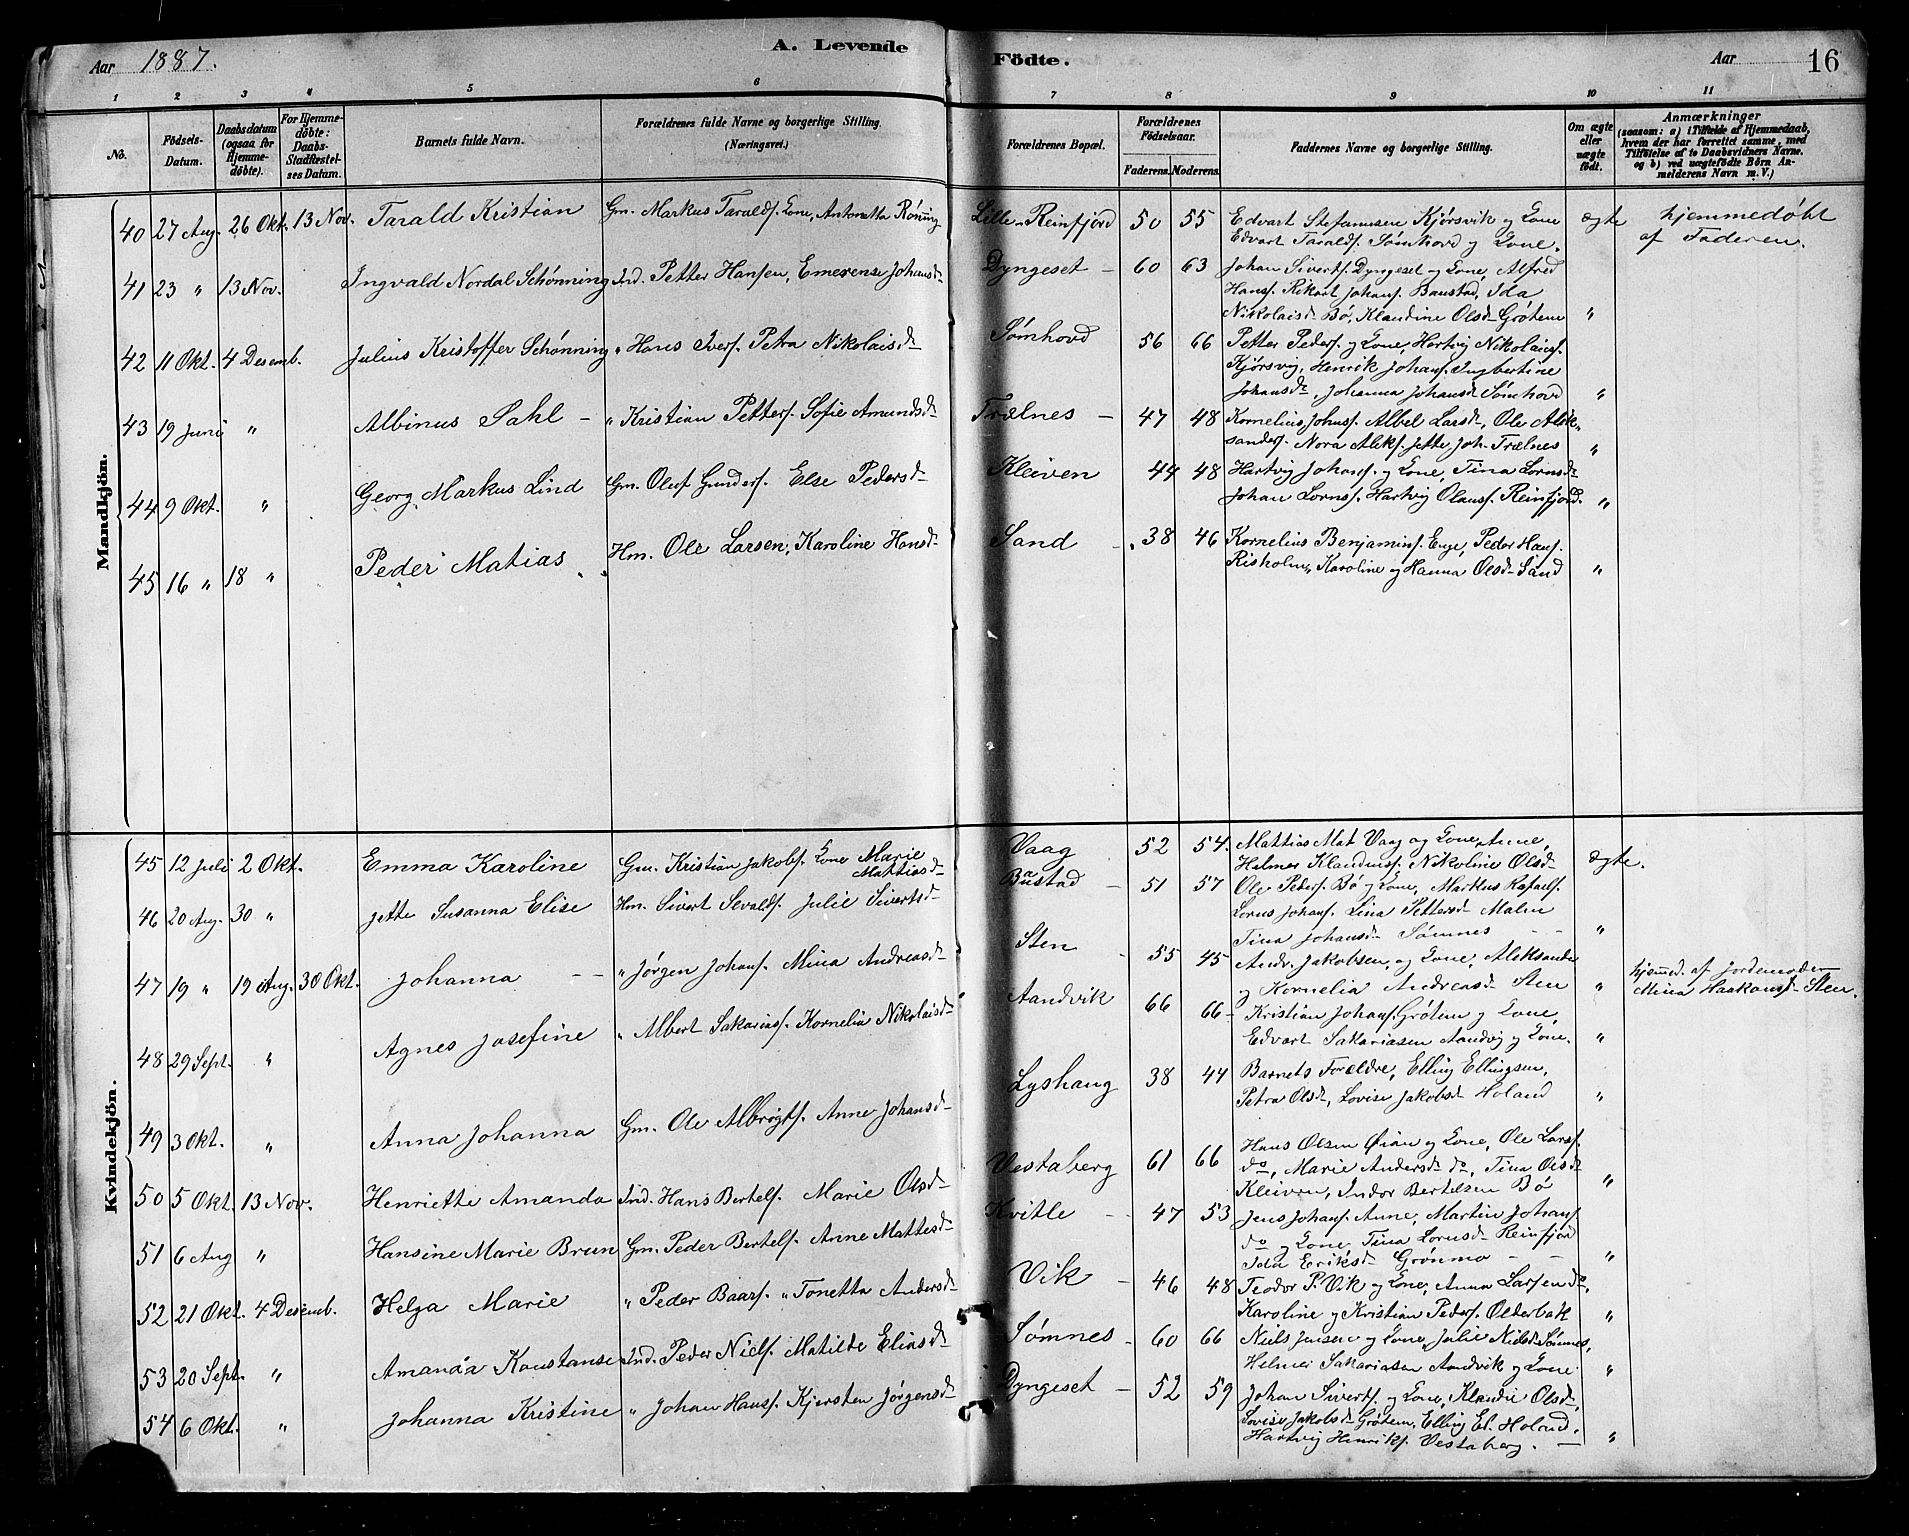 Aar 1887.
A. Levende Födte.
Aar 16
1 2 3 4 5 6 7 8 9 10 11
No.
Födsels-Datum.
Daabsdatum (ogsaa for Hjemmedöbte).
For Hjemmedöbte: Daabs-Stadfæstelses Datum.
Barnets fulde Navn.
Forældrenes fulde Navne og borgerlige Stilling. (Næringsvei.)
Forældrenes Bopæl.
Forældrenes Födselsaar.
Faderens. Moderens.
Faddernes Navne og borgerlige Stilling.
Om ægte eller uægte födt.
Anmærkninger
(saasom: a) i Tilfælde af Hjemmedaab, hvem der har forrettet samme, med Tilföielse af to Daabsvidners Navne, og b) ved uægtefödte Börn Anmelderens Navn m. V.)
Mandkjön.
40 27 Aug. 26 Okt. 13 Nov. Tarald Kristian Gm. Markus Taralds. Kone, Antonetta Røning Lille-Reinfjord 50 55 Edvart Stefanusen Kjørsvik og Kone
Edvart Taralds. Sømhovd og Kone. ægte hjemmedøbt
af Faderen.
41 23 " 13 Nov. Ingvald Nordal Schønning Ind. Petter Hansen, Emerense Johansd. Dyngeset - 60 63 Johan Siverts. Dyngeset og Kone, Alfred
Hans. Rikart Johans. Baustad, Ida
Nikolaisd. Bø, Klaudine Olsd. Grøtem "
42 11 Okt. 4 Desemb. Julius Kristoffer Schønning " Hans Ivers. Petra Nikolaisd. Sømhovd 56 66 Petter Peders. og Kone, Hartvig Nikolais.
Kjørsvig, Henrik Johans. Ingbertine
Johansd., Johanna Johansd. Sømhovd "
43 19 Juni " Albinus Dahl - " Kristian Petters. Sofie Amundsd. Trælnes - 47 48 Kornelius Johns. Albel Larsd., Ole Alek-
sanders. Nora Aleks. Jette Joh. Trælnes "
44 9 Okt. " Georg Markus Lind Gm. Oluf Gunders. Else Pedersd. Kleiven 44 48 Hartvig Johans. og Kone, Tina Lornsd.
Johan Lorns. Hartvig Olaus. Reinfjord. "
45 16 " 18 " Peder Matias Hm. Ole Larsen, Karoline Hansd. Sand - 38 46 Kornelius Benjamins. Enge, Peder Hans.
Risholm, Karoline og Hanna Olsd. Sand "
Kvindekjön.
45 12 Juli 2 Okt. Emma Karoline Gm. Kristian Jakobs. Kone Marie Mattiasd. Vaag 52 54. Mattias Mat Vaag og Kone, Anne,
Helmer Klaudius. Nikoline Olsd. ægte.
46 20 Aug. 30 " Jette Susanna Elise Hm. Sivert Sevalds. Julie Sivertsd. Baustad - 51 57 Ole Peders. Bø og Kone, Markus Rafaels.
Lorns Johans. Lina Pettersd. Malm
Tina Johansd. Sømnes - - "
47 19 " 19 Aug. 30 Okt. Johanna - - " Jørgen Johans. Mina Andreasd. Sten - 55 45 Andr. Jakobsen og Kone, Aleksander
og Kornelia Andreasd. Sten " hjemmed. af Jordemoder
Mina Haakonsd. Sten.
48 29 Sept. " Agnes Josefine " Albert Sakarias. Kornelia Nikolaisd. Aandvik 66 66 - Kristian Johans. Grøtem og Kone,
Edvart Sakariasen Aandvig og Kone. "
49 3 Okt. " Anna Johanna Gm. Ole Albrigts. Anne Johansd. Lyshaug 38 44 Barnets Forældre, Elling Ellingsen,
Petra Olsd., Lovise Jakobsd. Holand "
50 5 Okt. 13 Nov. Henriette Amanda Ind. Hans Bertels. Marie Olsd. Vestaberg 61 66 Hans Olsen Øian og Kone, Ole Lars.
do, Marie Andersd. do, Tina Olsd.
Kleiven, Indor Bertelsen Bø "
51 6 Aug " Hansine Marie Brun Gm. Peder Bertels. Anne Mattesd. Kvitle - 47 53 Jens Johans. Anne, Martin Johans.
do og Kone, Tina Lornsd. Reinfjord
Ida Eriksd. Grønmo - - "
52 21 Okt. 4 Desemb. Helga Marie " Peder Baars. " Tonetta Andersd. Vik - 46 48 Teodor P. Vik og Kone, Anna Larsen do,
Karoline og Kristian Peders. Olderbak "
53 20 Sept. " Amanda Konstanse Ind. Peder Niels. Matilde Eliasd. Sømnes - 60 66 Niels Jensen og Kone, Julie Nielsd. Sømnes,
Helmer Sakariasen Aandvik og Kone "
54 6 Okt. " Johanna Kristine " Johan Hans. Kjersten Jørgensd. Dyngeset - 52 59 Johan Siverts. og Kone, Klaudie Olsd.,
Lovise Jakobsd. Grøtem, Elling El. Holand,
Hartvig Henriks. Vestaberg. - "